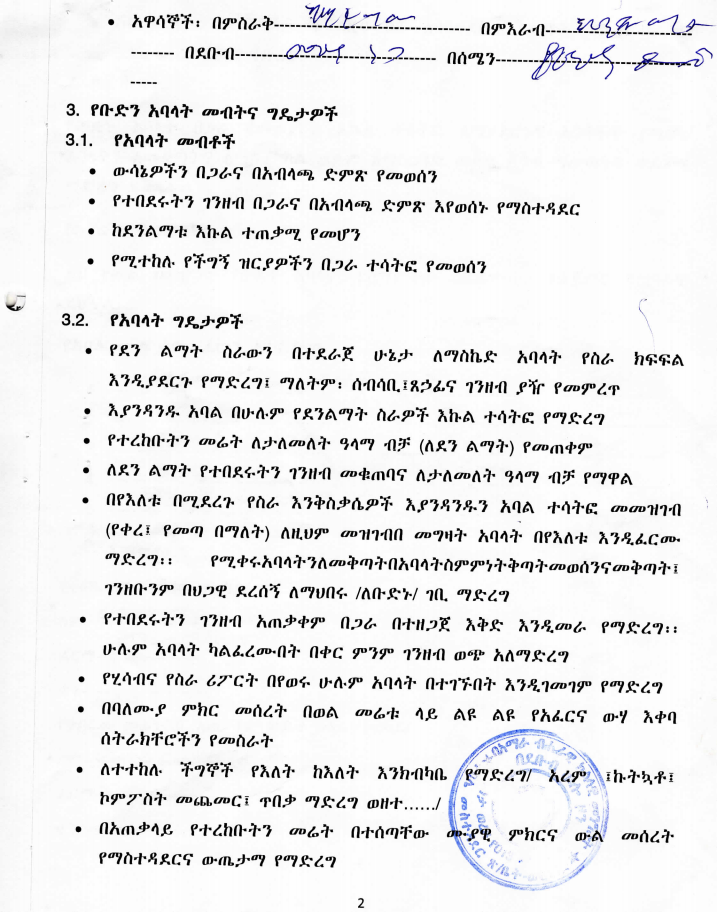 • አዋሳኞች፡ በምስራቅ------------------------------ በምእራብ----------------------
-------- በደቡብ------------------------------- በሰሜን-----------------------------------
-----
3. የቡድን አባላት መብትና ግዴታዎች
3.1. የአባላት መብቶች
• ውሳኔዎችን በጋራና በአብላጫ ድምጽ የመወሰን
• የተበደሩትን ገንዘብ በጋራና በአብላጫ ድምጽ እየወሰኑ የማስተዳደር
• ከደንልማቱ እኩል ተጠቃሚ የመሆን
• የሚተከሉ የችግኝ ዝርያዎችን በጋራ ተሳትፎ የመወሰን
3.2. የአባላት ግዴታዎች
• የደን ልማት ስራውን በተደራጀ ሁኔታ ለማስኬድ አባላት የስራ ክፍፍል
እንዲያደርጉ የማድረግ፤ ማለትም፡ ሰብሳቢ፤ጸኃፊና ገንዘብ ያዥ የመምረጥ
• እያንዳንዱ አባል በሁሉም የደንልማት ስራዎች እኩል ተሳትፎ የማድረግ
• የተረከቡትን መሬት ለታለመለት ዓላማ ብቻ (ለደን ልማት) የመጠቀም
• ለደን ልማት የተበደሩትን ገንዘብ መቁጠባና ለታለመለት ዓላማ ብቻ የማዋል
• በየእለቱ በሚደረጉ የስራ እንቅስቃሴዎች እያንዳንዱን አባል ተሳትፎ መመዝገብ
(የቀረ፤ የመጣ በማለት) ለዚህም መዝገብበ መግዛት አባላት በየእለቱ እንዲፈርሙ
ማድረግ፡፡ የሚቀሩአባላትንለመቅጣትበአባላትስምምነትቅጣትመወሰንናመቅጣት፤
ገንዘቡንም በህጋዊ ደረሰኝ ለማህበሩ /ለቡድኑ/ ገቢ ማድረግ
• የተበደሩትን ገንዘብ አጠቃቀም በጋራ በተዘጋጀ እቅድ እንዲመራ የማድረግ፡፡
ሁሉም አባላት ካልፈረሙበት በቀር ምንም ገንዘብ ወጭ አለማድረግ
• የሂሳብና የስራ ሪፖርት በየወሩ ሁሉም አባላት በተገኙበት እንዲገመገም የማድረግ
• በባለሙያ ምክር መሰረት በወል መሬቱ ላይ ልዩ ልዩ የአፈርና ውሃ እቀባ
ሰትራክቸሮችን የመስራት
• ለተተከሉ ችግኞች የእለት ከእለት እንክብካቤ የማድረግ/ አረም ፤ኩትኳቶ፤
ኮምፖስት መጨመር፤ ጥበቃ ማድረግ ወዘተ....../
• በአጠቃላይ የተረከቡትን መሬት በተሰጣቸው ሙያዊ ምክርና ውል መሰረት
የማስተዳደርና ውጤታማ የማድረግ
2